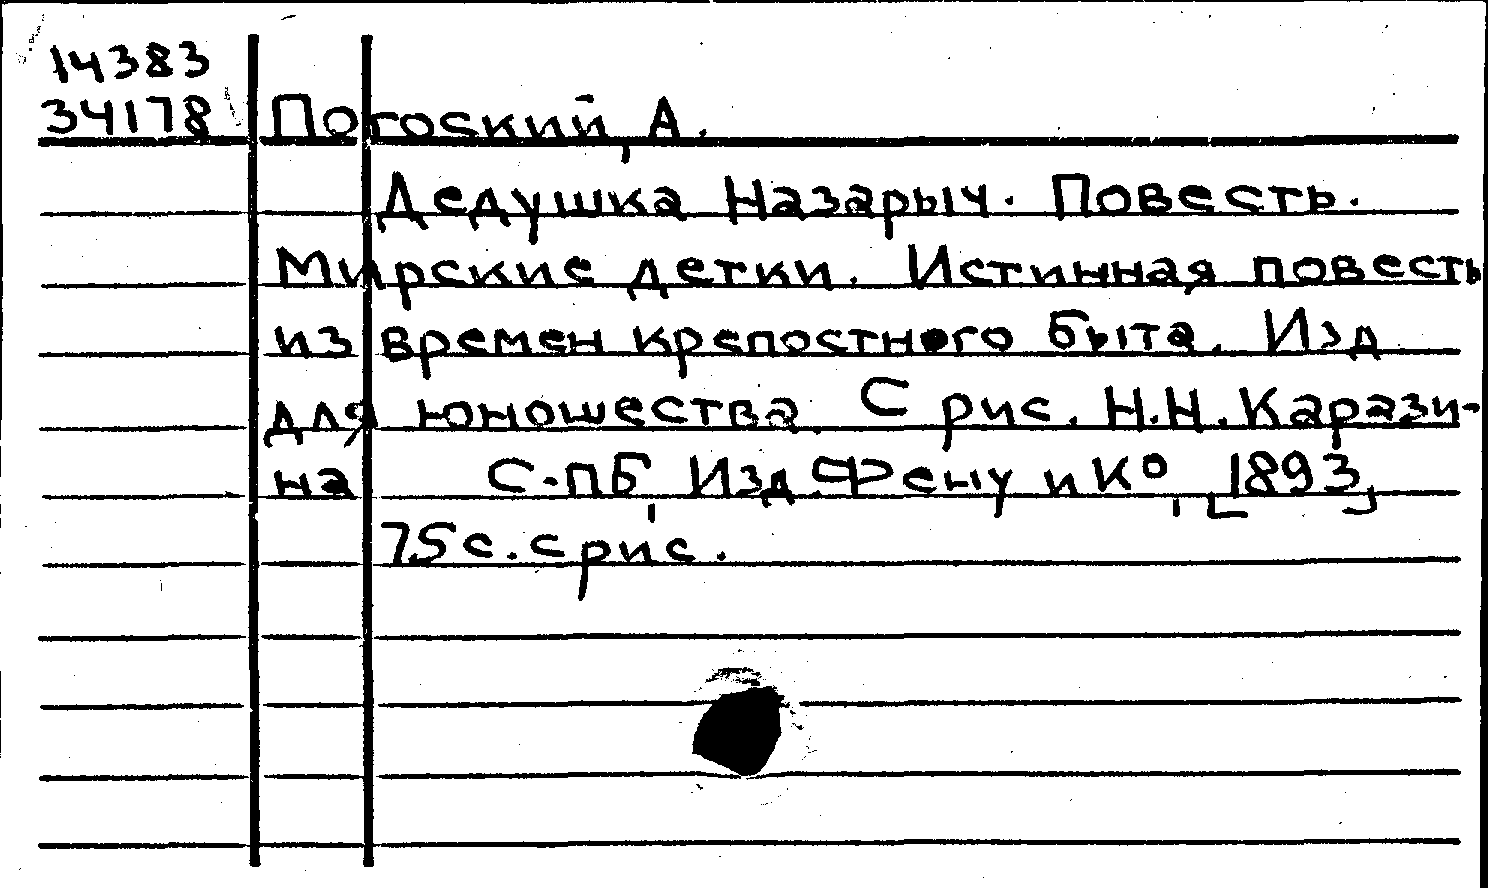 14383
34178 Погоский, А.
Дедушка Назарыч. Повесть.
Мирские детки. Истинная повесть
из времен крепостного быта. Изд
для юношества. С рис. Н.Н. Карази-
на С.-ПБ, Изд. Фену и Ко, [1893]
75 с. с рис.